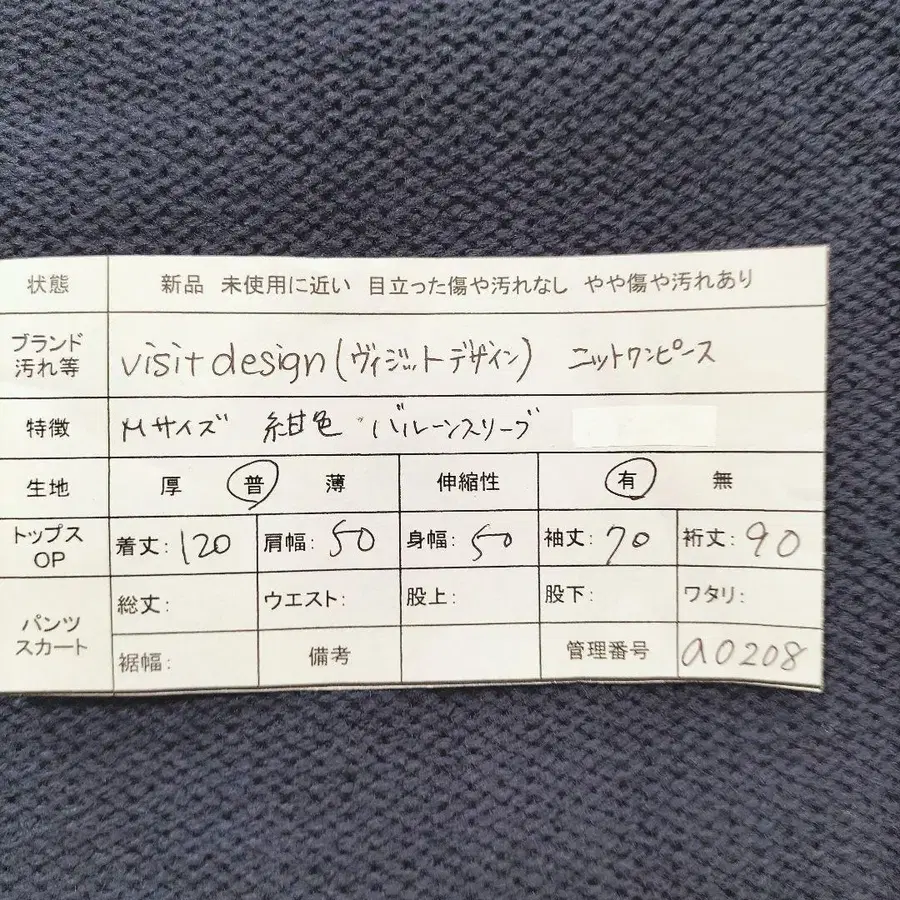 状態 新品 未使用に近い 目立った傷や汚れなし やや傷や汚れあり
ブランド
汚れ等 visit design (ヴィジットデザイン) ニットワンピース
特徴 Mサイズ 紺色 バルーンスリーブ
生地 厚 普 薄 伸縮性 有 無
トップス
OP 着丈: 120 肩幅: 50 身幅: 50 袖丈: 70 裄丈: 90
パンツ
スカート 総丈: ウエスト: 股上: 股下: ワタリ:
裾幅: 備考 管理番号 a0208